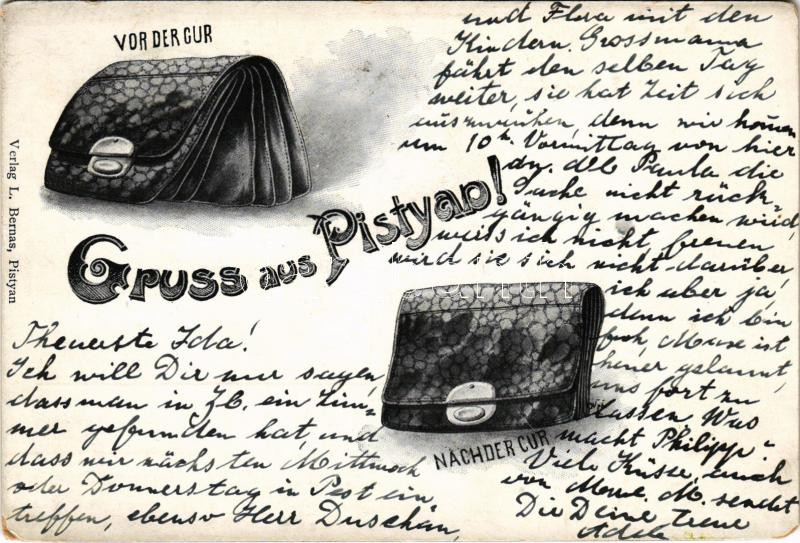 VOR DER CUR
Gruss aus Pistyan!
NACH DER CUR
Verlag L. Bernas, Pistyan
Theuerste Ida!
Ich will Dir nur sagen,
dass man in ein Zim-
mer gefunden hat, und
dass wir nächsten Mittwoch
oder Donnerstag in Pest ein
treffen, ebenso Herr Duschán,
und Flora mit den
Kindern. Grossmama
fährt den selben Tag
weiter, sie hat Zeit sich
auszuruhen, denn wir kommen
um 10h Vormittag von hier
an. Ob Paula die
Sache nicht rück-
gängig machen wird,
weiss ich nicht, freuen
wird sie sich nicht darüber,
ich aber ja,
denn ich bin
froh, ist
gelaunt,
uns fort zu
lassen. Was
macht Philipp?
Viele Küsse, auch
von M. sendet
Die Deine treue
Adele